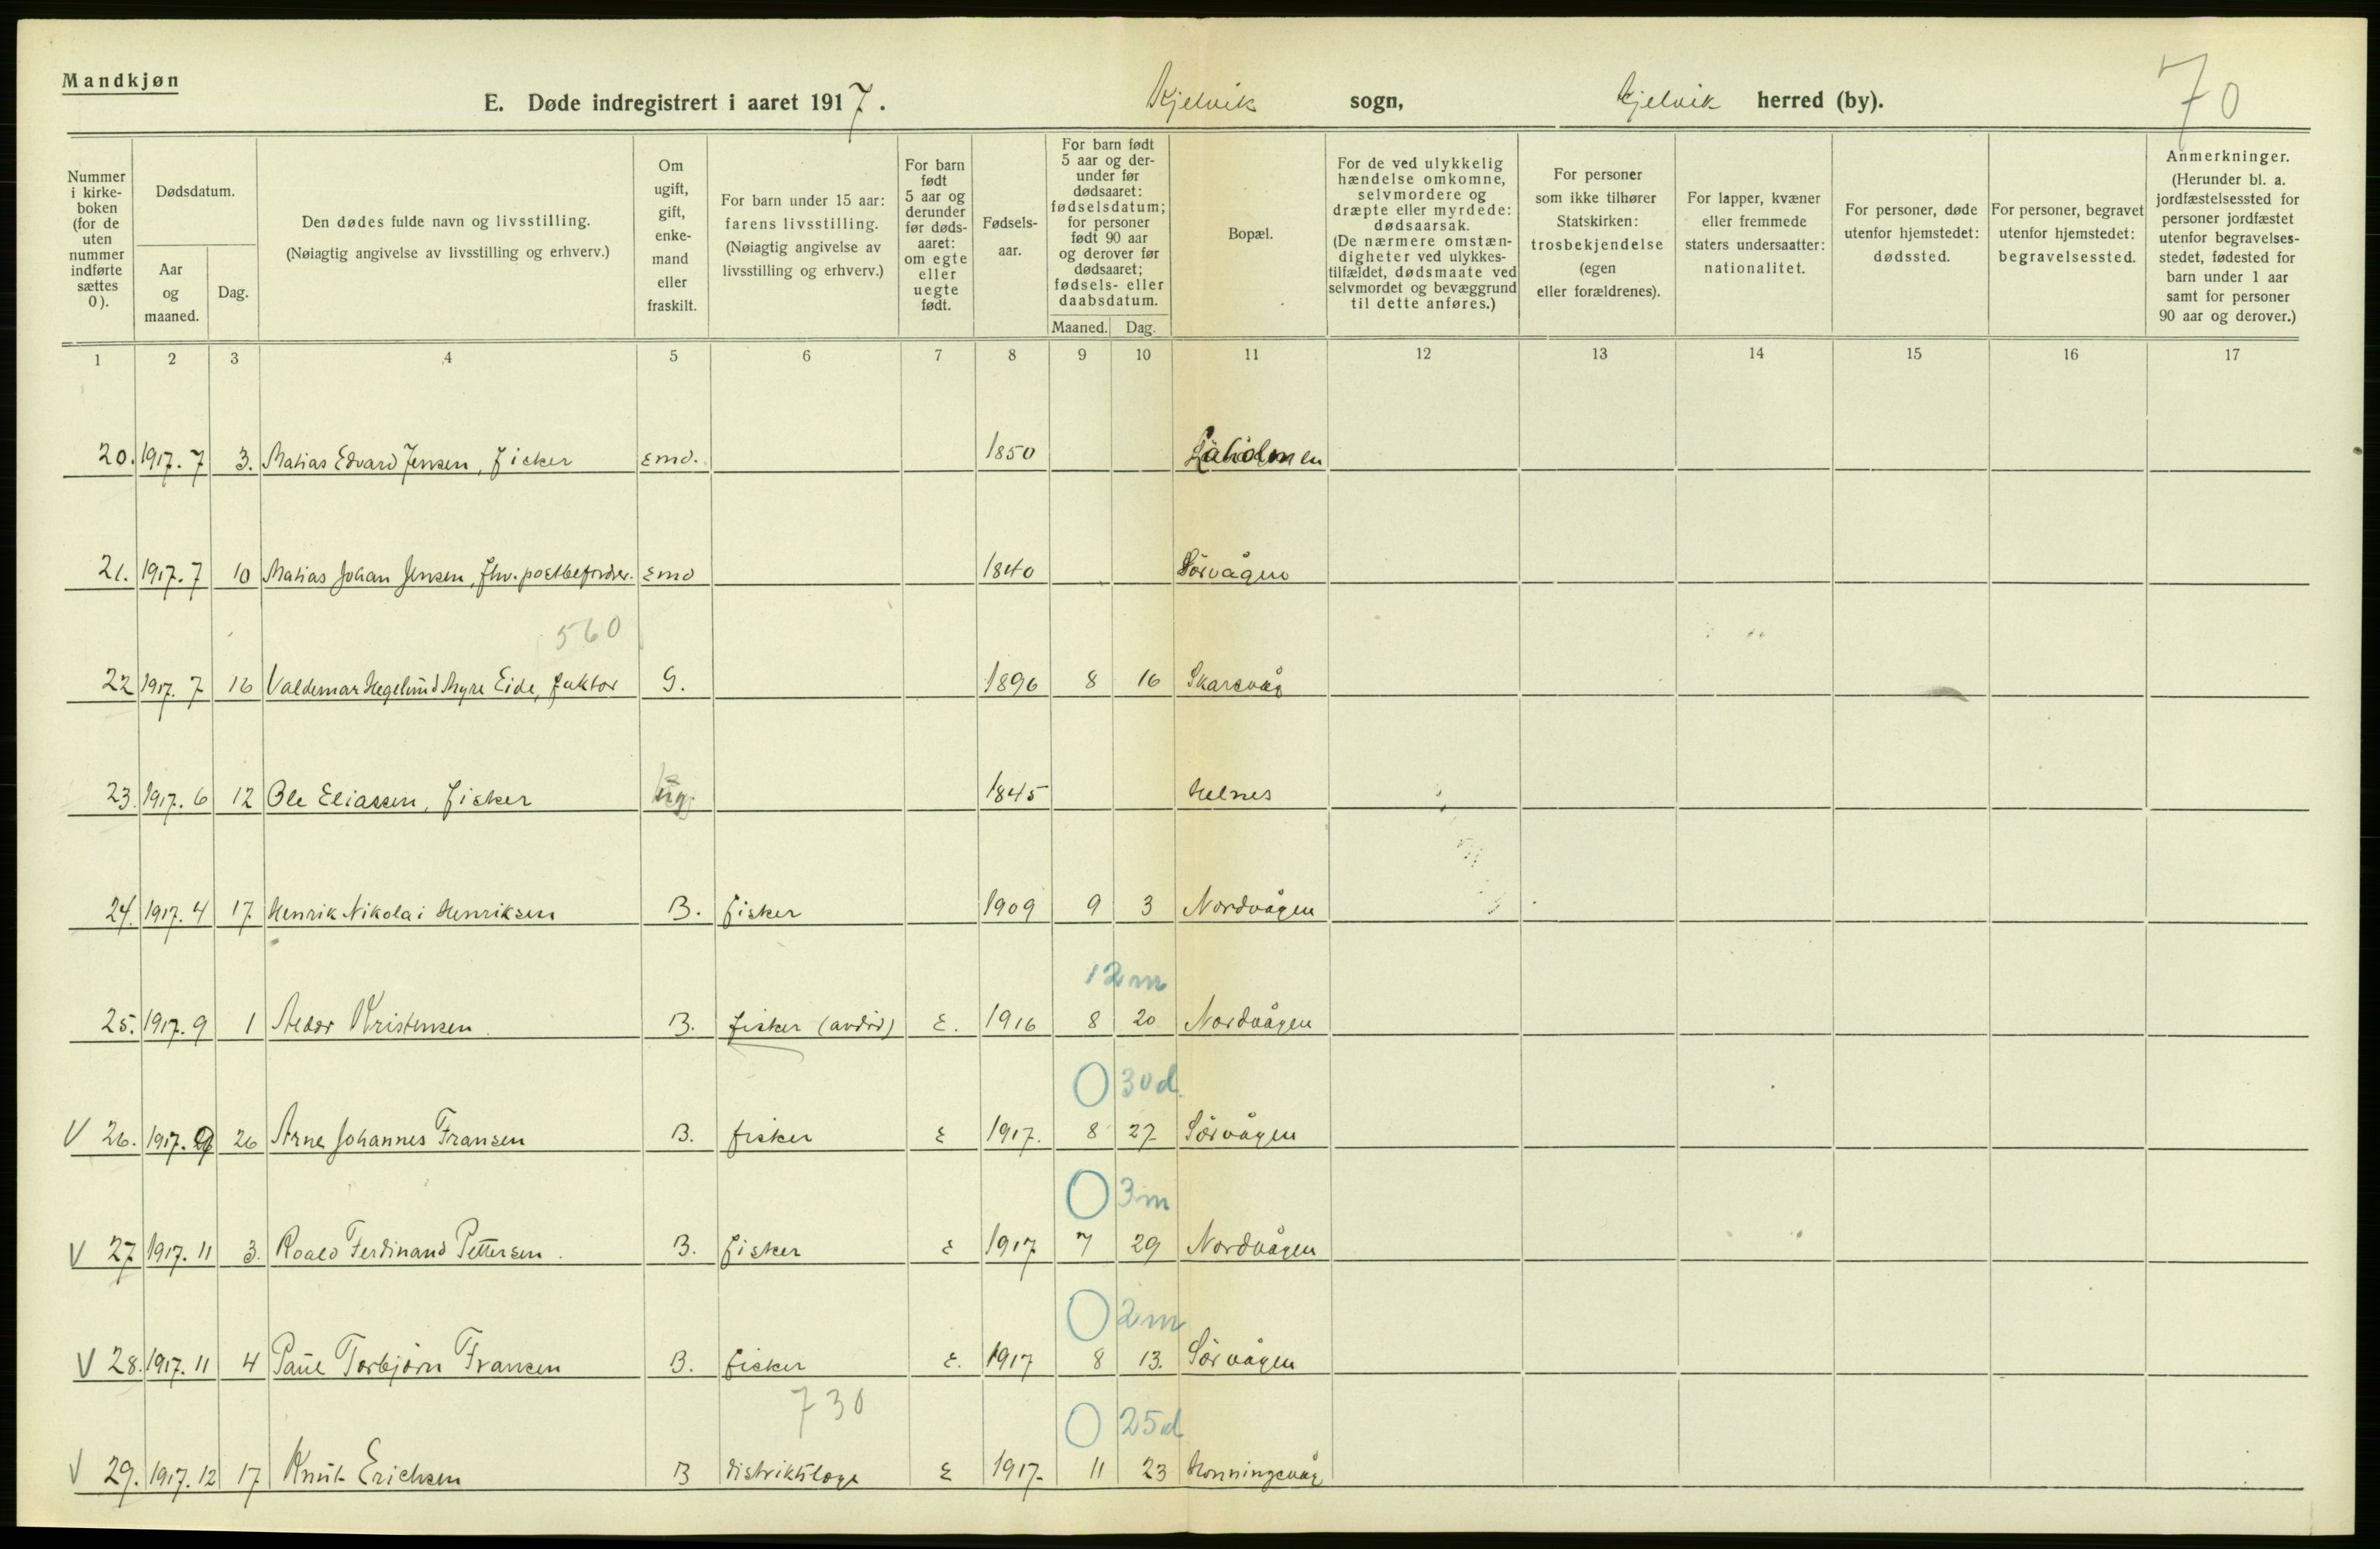 Mandkjøn
E. Døde indregistrert i aaret 1917. Kjelvik sogn, Kjelvik herred (by). 70
Nummer i kirke- boken (for de uten nummer indførte sættes 0).
Dødsdatum.
Aar og maaned.
Dag.
Den dødes fulde navn og livsstilling.
(Nøiagtig angivelse av livsstilling og erhverv.)
Om ugift, gift, enke- mand eller fraskilt.
For barn under 15 aar: farens livsstilling. (Nøiagtig angivelse av livsstilling og erhverv.)
For barn født 5 aar og derunder før døds- aaret: om egte eller uegte født.
Fødsels- aar.
For barn født 5 aar og der- under før dødsaaret: fødselsdatum; for personer født 90 aar og derover før dødsaaret; fødsels- eller daabsdatum.
Maaned. Dag.
Bopæl.
For de ved ulykkelig hændelse omkomne, selvmordere og dræpte eller myrdede: dødsaarsak. (De nærmere omstæn- digheter ved ulykkes- tilfældet, dødsmaate ved selvmordet og bevæggrund til dette anføres.)
For personer som ikke tilhører Statskirken: trosbekjendelse (egen eller forældrenes).
For lapper, kvæner eller fremmede staters undersaatter: nationalitet.
For personer, døde utenfor hjemstedet: dødssted.
For personer, begravet utenfor hjemstedet: begravelsessted.
Anmerkninger. (Herunder bl. a. jordfæstelsessted for personer jordfæstet utenfor begravelses- stedet, fødested for barn under 1 aar samt for personer 90 aar og derover.)
1 2 3 4 5 6 7 8 9 10 11 12 13 14 15 16 17
20. 1917. 7 3. Matias Edvard Jensen, fisker Emd. 1850
21. 1917. 7 10 Matias Johan Jensen, fhv. postbefordrer. Emd 1840 Sörvågen
560
22 1917. 7 16 Valdemar Hegelund Myre Eide, faktor G. 1896 8 16 Skarsvåg
23. 1917. 6 12 Ole Eliassen, fisker ug. 1845 Helnes
24. 1917. 4 17. Henrik Nikolai Henriksen B. fisker 1909 9 3 Nordvågen
12 m
25. 1917. 9 1 Aedor Kristensen. B. fisker (avdöd) E. 1916 8 20 Nordvågen
0 30 d.
V 26. 1917. 9 26 Arne Johannes Fransen B. fisker E 1917. 8 27 Sörvågen
0 3 m
V 27 1917. 11 3. Roald Ferdinand Pettersen. B. fisker E 1917 7 29 Nordvågen
0 2 m
V 28. 1917. 11 4 Paul Torbjörn Fransen B. fisker E. 1917 8 13. Sörvågen
730
0 25 d
V 29. 1917. 12 17 Knut Erichsen B distriktslæge E 1917- 11 23 Honningsvåg